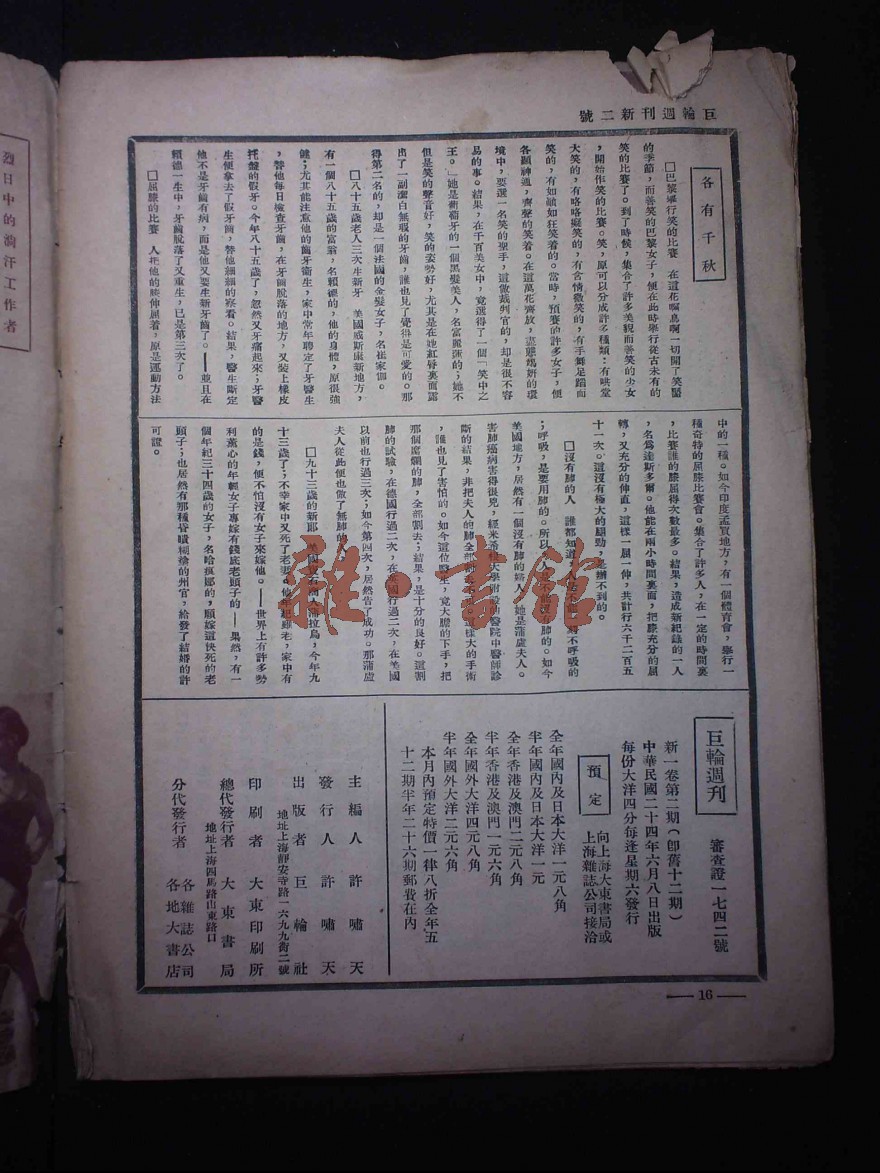 巨輪週刊新二號
各有千秋
□巴黎舉行笑的比賽　在這花囀鳥啊一切開了笑靨
的季節，而善笑的巴黎女子，便在此時舉行從古未有的
笑的比賽了。到了時候，集合了許多美貌而善笑的少女
，開始作笑的比賽。笑，原可以分成許多種類：有哄堂
大笑的，有咯咯癡笑的，有含情微笑的，有手舞足蹈而
笑的，有如顚如狂笑着的。當時，預賽的許多女子，便
各顯神通，齊聲的笑着。在這萬花齊放，
境中，要選一名笑的聖手，這做裁判官的，却是很不容
易的事。結果，在千百美女中，竟選得了一個「笑中之
王。」她是葡萄牙的一個黑髮美人，名富麗蓮的；她不
但是笑的聲音好，笑的姿勢好，尤其是在她紅唇裏面露
出了一副潔白無瑕的牙齒，誰也見了覺得是可愛的。那
得第二名的，却是一個法國的金髮女子，名崔家儞。
□八十五歲老人三次生新牙　美國威斯康新地方，
有一個八十五歲的富翁，名賴德的，他的身體，原很强
健；尤其能注意他的齒牙衞生，家中常年聘定了牙醫生
，替他每日檢查牙齒，在牙齒脫落的地方，又裝上橡皮
托盤的假牙。今年八十五歲了，忽然又牙痛起來；牙醫
生便拿去了假牙齒，替他細細的察看。結果，醫生斷定
他不是牙齒有病，而是他又要生新牙齒了。——並且在
賴德一生中，牙齒脫落了又重生，已是第三次了。
□屈膝的比賽　人把他的膝伸屈着，原是運動方法
中的一種。如今印度孟買地方，有一個體育會，舉行一
種奇特的屈膝比賽會。集合了許多人，在一定的時間裏
，比賽誰的膝屈得次數最多。結果，造成新紀錄的一人
，名爲達斯多爾。他能在兩小時間裏面，把膝充分的屈
轉，又充分的伸直，這樣一屈一伸，共計行六千二百五
十一次。這沒有極大的腿勁，是辦不到的。
□沒有肺的人　誰都知道
；呼吸，是要用肺的。所以
美國地方，居然有一個沒有肺的婦人，她是蒲盧夫人。
害肺癌病害得很兇，經米希根大學附設的醫院中醫師診
斷的結果，非把夫人的肺全部割去不可。這樣大的手術
，誰也見了害怕的。如今這位醫生，竟大膽的下手，把
那個腐爛的肺，全部割去；結果，是十分的良好。這割
肺的試驗，在德國行過二次，在英國行過二次，在美國
以前也行過三次；如今第四次，居然告了成功。那蒲盧
夫人從此便也做了無肺的人。
□九十三歲的新郎　美國煤油商人浦拉烏，今年九
十三歲了；不幸家中又死了老妻。他年紀雖老，家中有
的是錢，便不怕沒有女子來嫁他。——世界上有許多勢
利薰心的年輕女子專嫁有錢底老頭子的——果然，有一
個年紀三十四歲的女子，名哈痕娜的，願嫁這快死的老
頭子；也居然有那種昏瞶糊塗的州官，給發了結婚的許
可證。
巨輪週刊
審查證一七四二號
新一卷第二期（卽舊十二期）
中華民國二十四年六月八日出版
每份大洋四分每逢星期六發行
預定
向上海大東書局或
上海雜誌公司接洽
全年國內及日本大洋一元八角
半年國內及日本大洋一元
全年香港及澳門二元八角
半年香港及澳門一元六角
全年國外大洋四元八角
半年國外大洋二元六角
本月內預定特價一律八折全年五
十二期半年二十六期郵費在內
主編人　許嘯天
發行人　許嘯天
出版者　巨輪社
地址上海靜安寺路一六九九街二號
印刷者　大東印刷所
總代發行者　大東書局
地址上海四馬路山東路口
分代發行者　各雜誌公司
各地大書店
—— 16 ——
烈日中的滴汗工作者
雜·書館